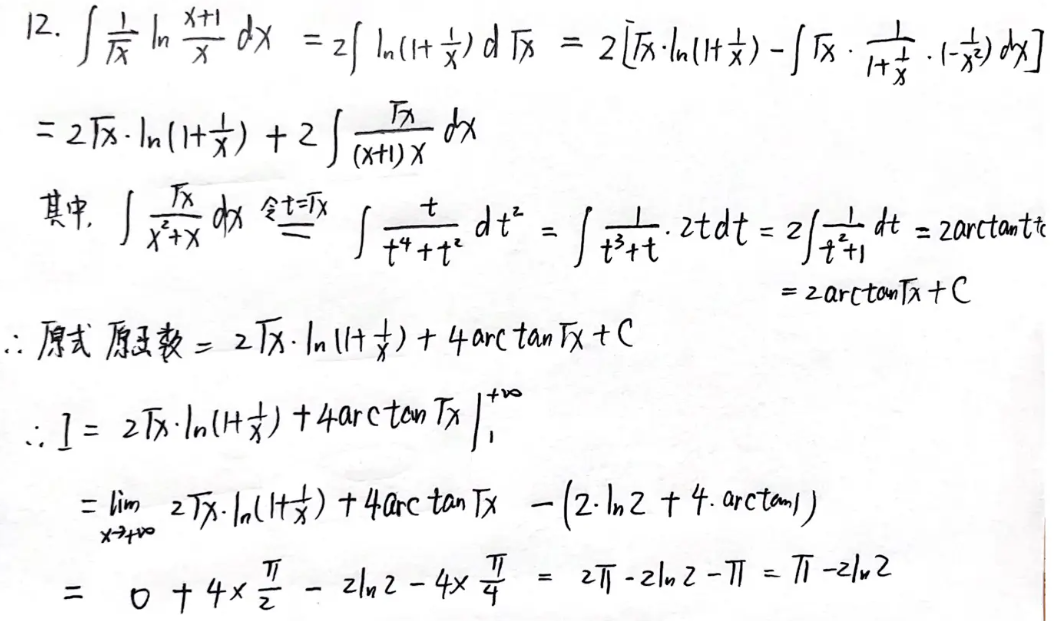 12. ∫ 1/√x ln (x+1)/x dx = 2∫ ln(1+1/x) d√x = 2[√x·ln(1+1/x) - ∫√x · 1/(1+1/x) · (-1/x²) dx]
= 2√x·ln(1+1/x) + 2∫ √x/((x+1)x) dx
其中, ∫ √x/(x²+x) dx 令t=√x = ∫ t/(t⁴+t²) dt² = ∫ 1/(t³+t) · 2t dt = 2∫ 1/(t²+1) dt = 2arctant+c
= 2arctan√x + C
∴ 原式 原函数 = 2√x·ln(1+1/x) + 4arctan√x + C
∴ I = 2√x·ln(1+1/x) + 4arctan√x |₁^{+∞}
= lim x→+∞ 2√x·ln(1+1/x) + 4arctan√x - (2·ln2 + 4·arctan1)
= 0 + 4×π/2 - 2ln2 - 4×π/4 = 2π - 2ln2 - π = π - 2ln2